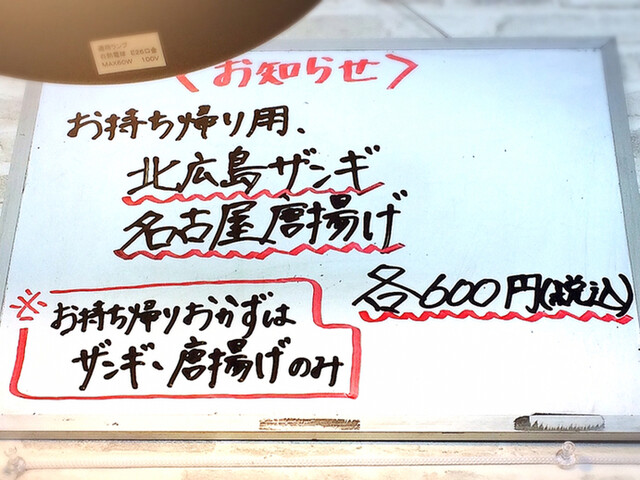 適用ランプ
白熱電球 E26口金
MAX60W 100V
〈お知らせ〉
お持ち帰り用、
北広島ザンギ
名古屋唐揚げ
各600円(税込)
※
お持ち帰りおかずは
ザンギ、唐揚げのみ